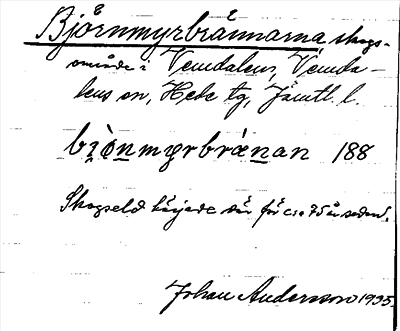 Björnmyrbrännarna, skogs-
område i Vemdalen, Vemda-
lens sn, Hede tg, Jämtl. l.
bi̯ò̱ṉmyrbràṉan 188
Skogseld härjade där för c:a 75 år sedan.
Johan Andersson 1935.